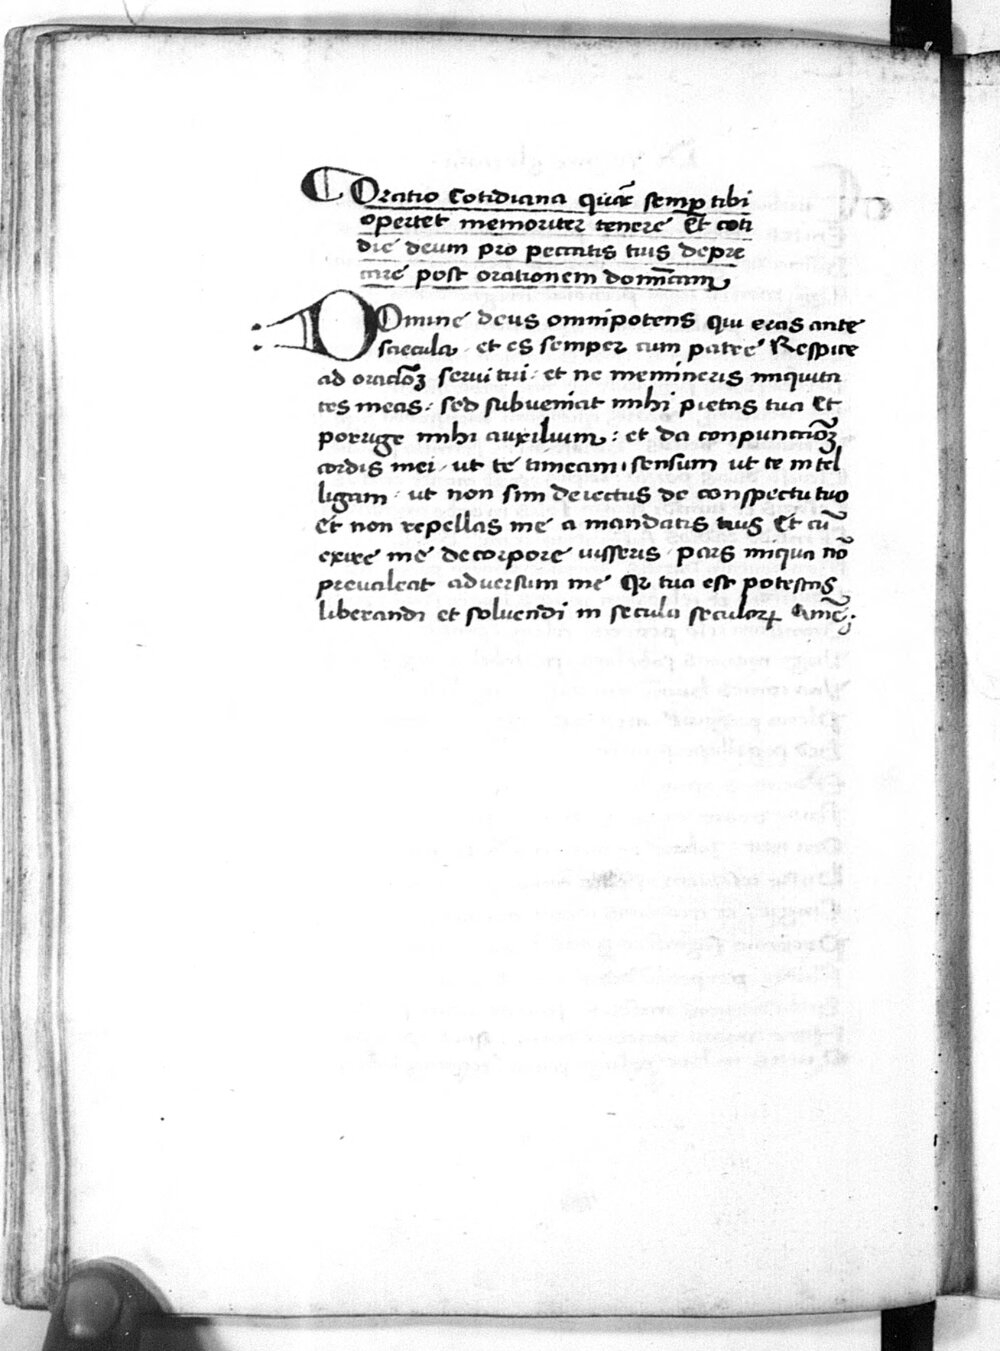 Oratio Cotidiana quā semp tibi
opertet memoriter tenere Et coti
die deum pro peccatis tuis depre
care post orationem domīcam
Domine deus omnipotens qui eras ante
saecula et es semper cum patre Respice
ad oracioꝫ servi tui et ne memineris iniquita
tes meas sed subueniat mihi pietas tua Et
porrige mihi auxilium et da conpunctioꝫ
cordis mei ut te timeam sensum ut te intel
ligam ut non sim deiectus de conspectu tuo
Et non repellas me a mandatis tuis Et cū
exire me de corpore iusseris pars iniqua nō
prevaleat adversum me Qr tua est potestas
liberandi et soluendi in secula seculoꝝ Amē